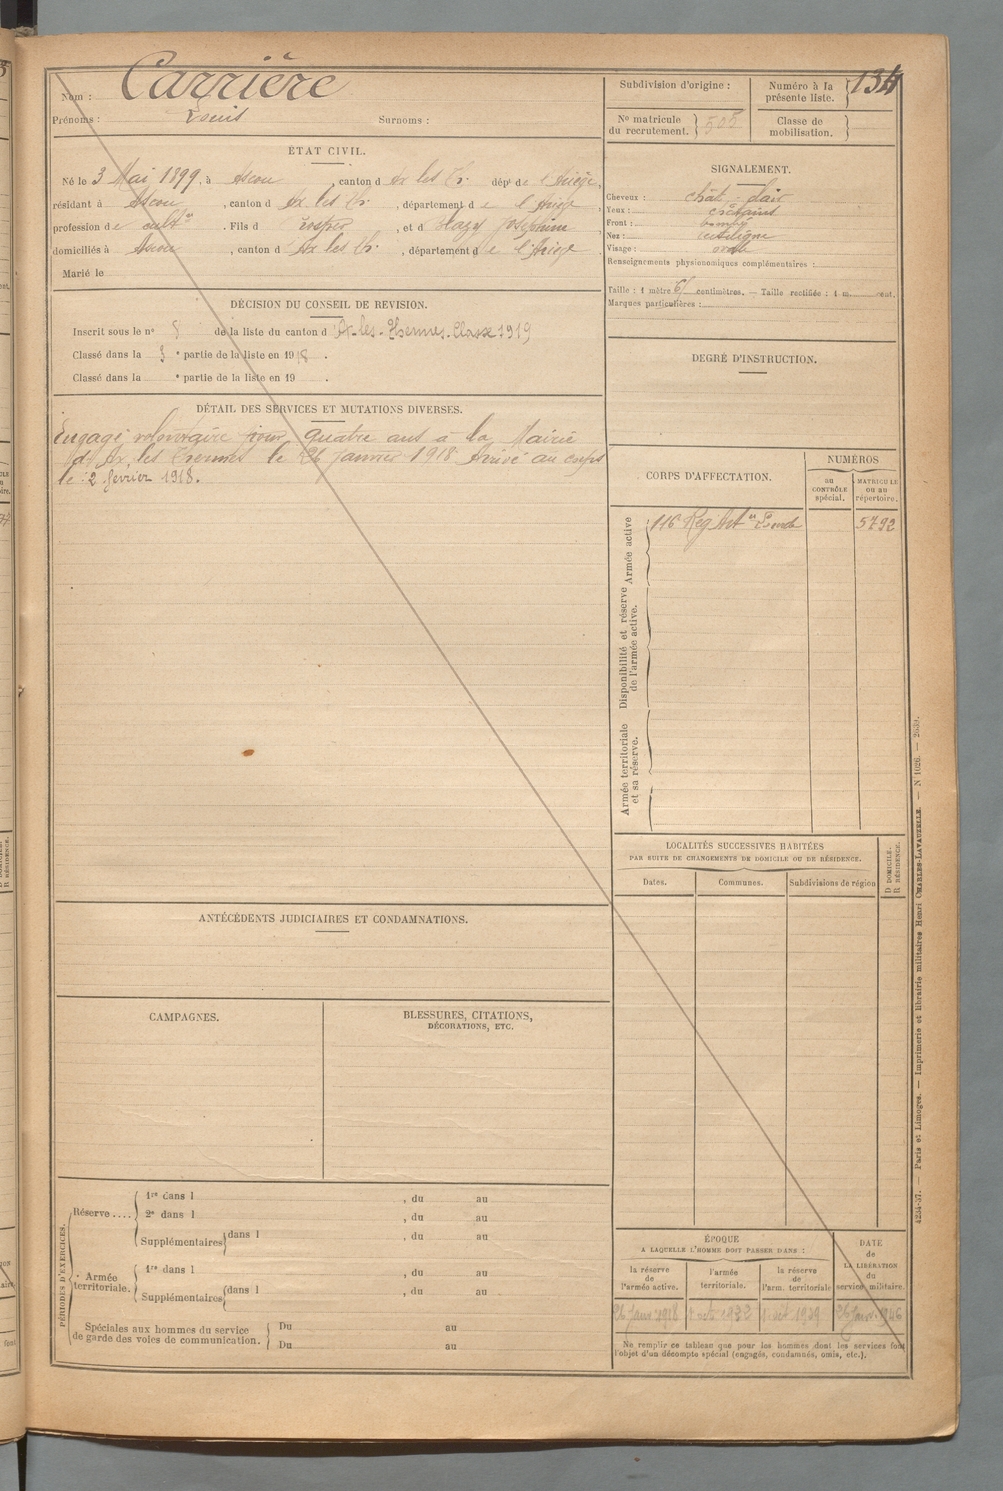 Nom : Carrière
Prénoms : Louis Surnoms :
ÉTAT CIVIL.
Né le 3 Mai 1899, à Ascou, canton d Ax les Th. dépt de l'Ariège,
résidant à Ascou, canton d Ax les Th., département de l'Ariège,
profession de cultr. Fils d Prosper, et d Joséphine,
domiciliés à Ascou, canton d Ax les Th., département de l'Ariège.
Marié le
DÉCISION DU CONSEIL DE REVISION.
Inscrit sous le no de la liste du canton d Ax-les-Thermes. Classe 1919
Classé dans la 3e partie de la liste en 1918.
Classé dans la e partie de la liste en 19 .
DÉTAIL DES SERVICES ET MUTATIONS DIVERSES.
Engagé volontaire pour quatre ans à la Mairie
d'Ax les Thermes le 26 janvier 1918 Arrivé au corps
le 2 février 1918.
ANTÉCÉDENTS JUDICIAIRES ET CONDAMNATIONS.
CAMPAGNES.
BLESSURES, CITATIONS,
DÉCORATIONS, ETC.
PÉRIODES D'EXERCICES.
Réserve ....
1re dans l , du au
2e dans l , du au
Supplémentaires dans l , du au
Armée territoriale.
1re dans l , du au
Supplémentaires dans l , du au
Spéciales aux hommes du service
de garde des voies de communication.
Du au
Du au
Subdivision d'origine :
Numéro à la
présente liste. 134
No matricule
du recrutement. 505
Classe de
mobilisation.
SIGNALEMENT.
Cheveux : chât clair
Yeux : châtains
Front : bombé
Nez : rectiligne
Visage : ovale
Renseignements physionomiques complémentaires :
Taille : 1 mètre 61 centimètres. — Taille rectifiée : 1 m. cent.
Marques particulières :
DEGRÉ D'INSTRUCTION.
CORPS D'AFFECTATION.
NUMÉROS
au
CONTRÔLE
spécial.
MATRICULE
ou au
répertoire.
Armée active
116 Reg Artie Lourde 5792
Disponibilité et réserve
de l'armée active.
Armée territoriale
et sa réserve.
LOCALITÉS SUCCESSIVES HABITÉES
PAR SUITE DE CHANGEMENTS DE DOMICILE OU DE RÉSIDENCE.
Dates. Communes. Subdivisions de région
D DOMICILE.
R RÉSIDENCE.
ÉPOQUE
A LAQUELLE L'HOMME DOIT PASSER DANS :
la réserve
de
l'armée active.
l'armée
territoriale.
la réserve
de
l'arm. territoriale
DATE
de
LA LIBÉRATION
du
service militaire.
26 Janv 1918 1 oct 1939 26 Janv. 1946
Ne remplir ce tableau que pour les hommes dont les services font
l'objet d'un décompte spécial (engagés, condamnés, omis, etc.).
4234-37. — Paris et Limoges. — Imprimerie et librairie militaires Henri CHARLES-LAVAUZELLE. — N° 1026. — 2639.